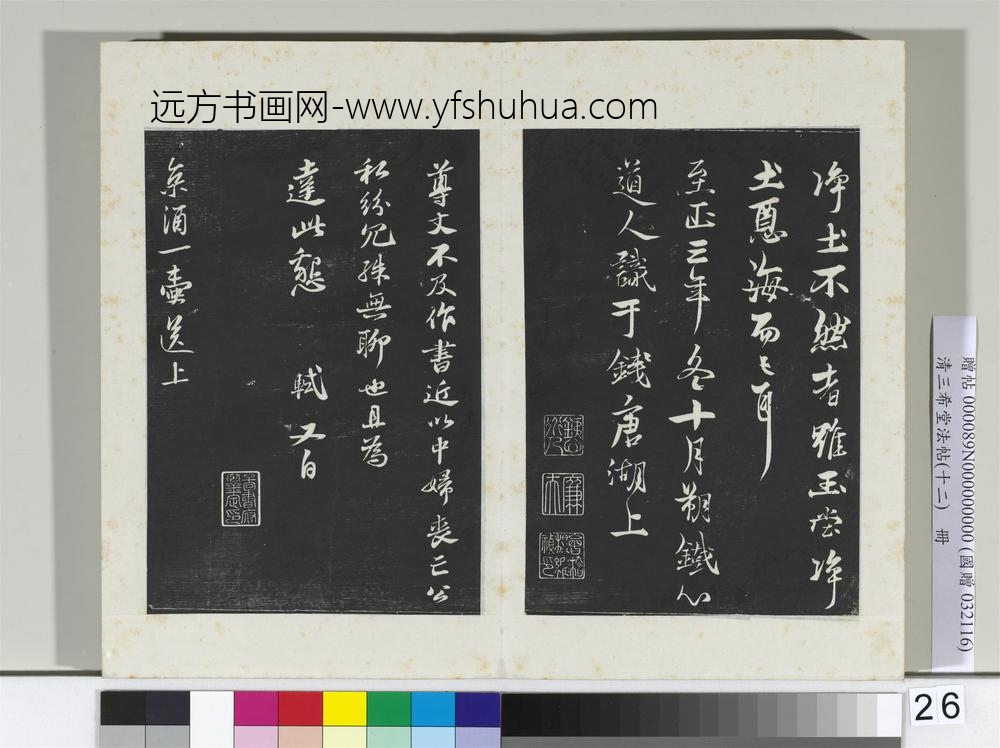 远方书画网-www.yfshuhua.com
净土不然者雖玉瑩净
土惡海而已耳
至正三年冬十月朔鐵心
道人識于錢唐湖上
尊丈不及作書近以中婦喪亡公
私紛冗殊無聊也且為
達此懇 軾又白
京酒一壷送上
贈帖 000089N000000000 (國贈 032116)
清三希堂法帖(十二) 冊
26